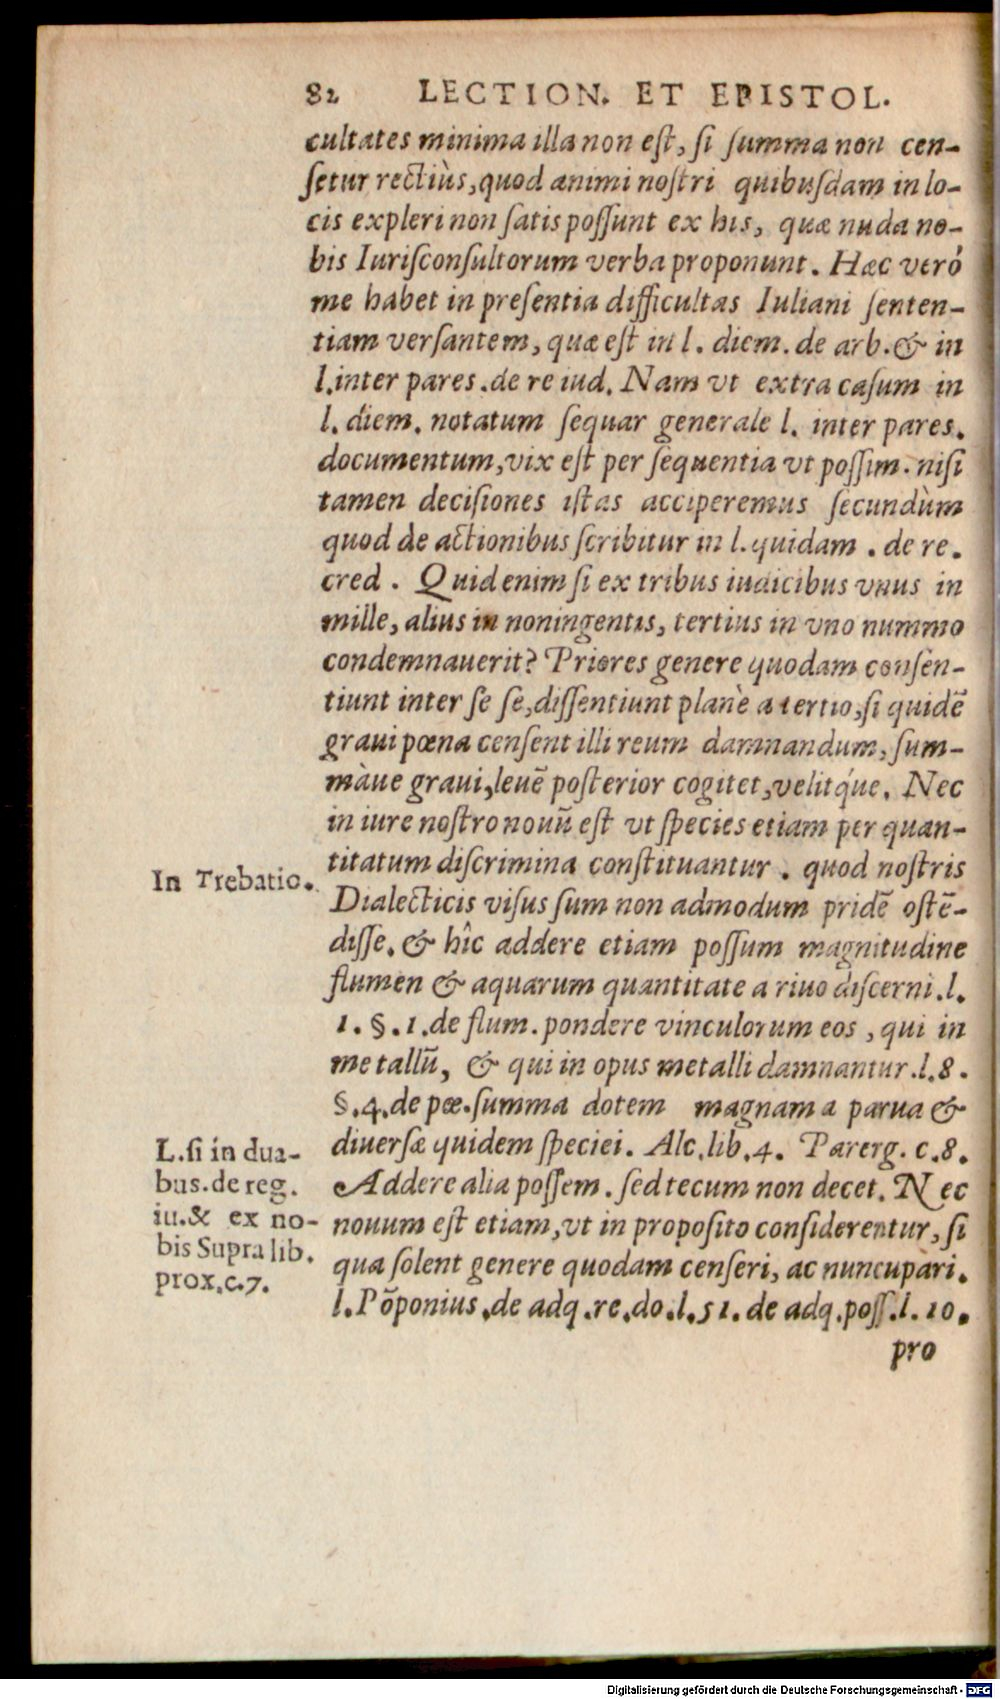 82 LECTION. ET EPISTOL.
cultates minima illa non eſt, ſi ſumma non cen-
ſetur rectiùs, quod animi noſtri quibuſdam in lo-
cis expleri non ſatis poſſunt ex his, quæ nuda no-
bis Iuriſconſultorum verba proponunt. Hæc verò
me habet in preſentia difficultas Iuliani ſenten-
tiam verſantem, quæ eſt in l. diem. de arb. & in
l. inter pares. de re iud. Nam vt extra caſum in
l. diem. notatum ſequar generale l. inter pares.
documentum, vix eſt per ſequentia vt poſſim. niſi
tamen deciſiones iſtas acciperemus ſecundùm
quod de actionibus ſcribitur in l. quidam . de re.
cred . Quid enim ſi ex tribus iudicibus vnus in
mille, alius in noningentis, tertius in vno nummo
condemnauerit? Priores genere quodam conſen-
tiunt inter ſe ſe, diſſentiunt planè a tertio, ſi quidē
graui pœna cenſent illi reum damnandum, ſum-
màue graui, leuē poſterior cogitet, velitq́ue. Nec
in iure noſtro nouū eſt vt ſpecies etiam per quan-
titatum diſcrimina conſtituantur . quod noſtris
In Trebatio.
Dialecticis viſus ſum non admodum pridē oſtē-
diſſe. & hîc addere etiam poſſum magnitudine
flumen & aquarum quantitate a riuo diſcerni. l.
1. §. 1. de flum. pondere vinculorum eos , qui in
metallū, & qui in opus metalli damnantur. l. 8 .
§. 4. de pœ. ſumma dotem magnam a parua &
diuerſæ quidem ſpeciei. Alc. lib. 4. Parerg. c. 8.
Addere alia poſſem. ſed tecum non decet. Nec
nouum eſt etiam, vt in propoſito conſiderentur, ſi
qua ſolent genere quodam cenſeri, ac nuncupari.
l. Pōponius. de adq. re. do. l. 51. de adq. poſſ. l. 10.
L. ſi in dua-
bus. de reg.
iu. & ex no-
bis Supra lib.
prox. c. 7.
pro
Digitalisierung gefördert durch die Deutsche Forschungsgemeinschaft - DFG